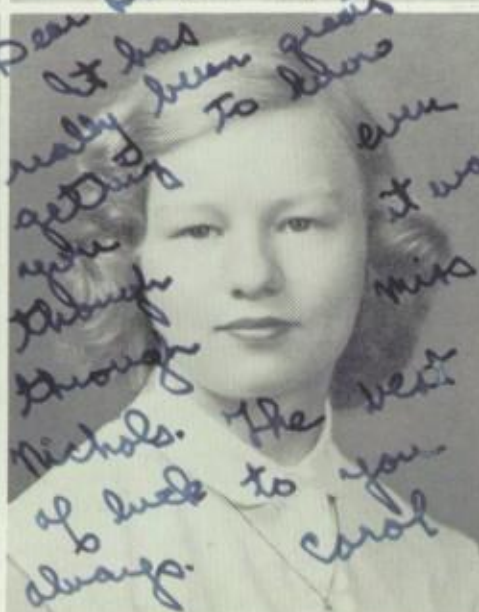 Dear
It has
really been great
getting to know
you even
though it was
through Miss
Nichols. The best
of luck to you
always. Carol